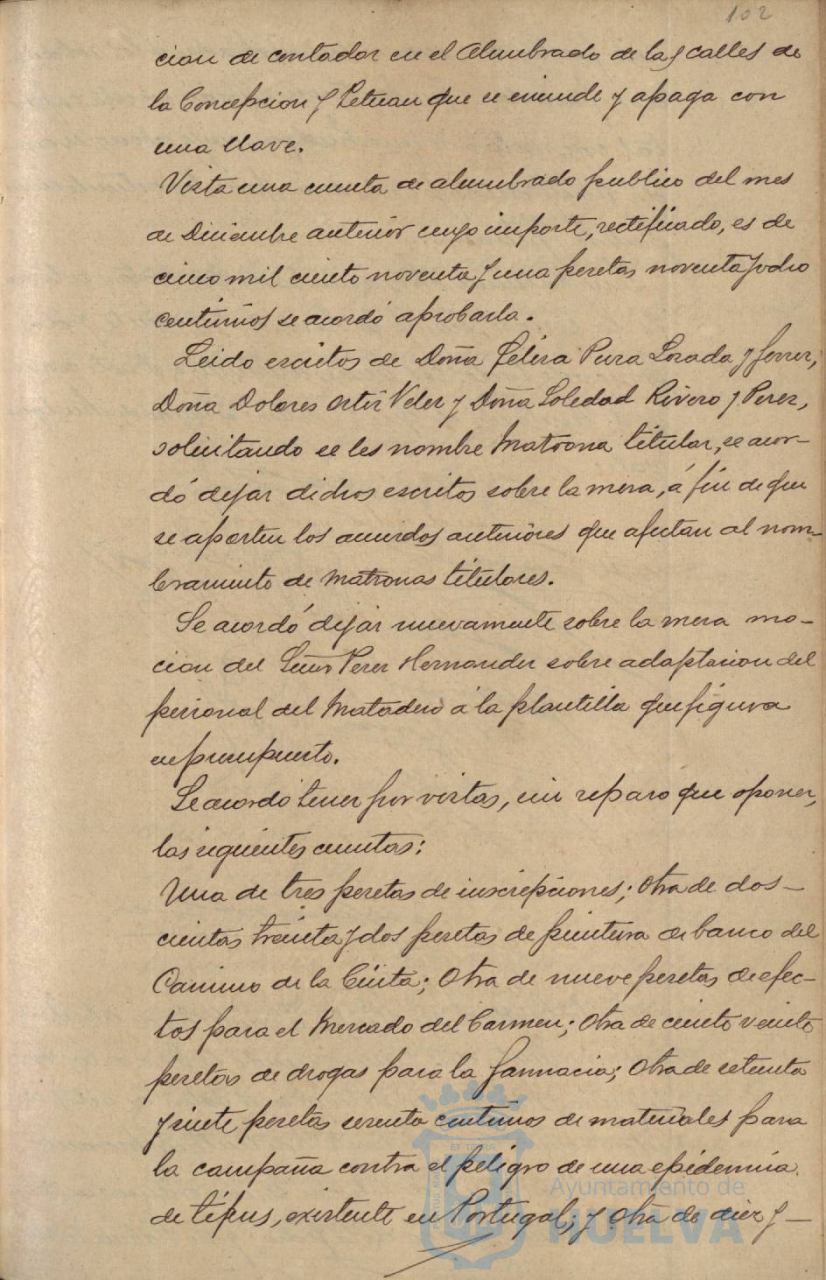 102
cion de contador en el Alumbrado de las calles de
la Concepcion y Tetuan que se enciende y apaga con
una llave.
Vista una cuenta de alumbrado publico del mes
de Diciembre anterior cuyo importe, rectificado, es de
cinco mil ciento noventa y una pesetas noventa y ocho
centimos se acordó aprobarla.
Leido escritos de Doña Felisa Pura Losada y Ferrer,
Doña Dolores Ortiz Velez y Doña Soledad Rivero y Perez,
solicitando se les nombre Matrona titular, se acor-
dó dejar dichos escritos sobre la mesa, á fin de que
se aporten los acuerdos anteriores que afectan al nom-
bramiento de Matronas titulares.
Se acordó dejar nuevamente sobre la mesa mo-
cion del Señor Perez Hernandez sobre adaptacion del
personal del Matadero á la plantilla que figura
en presupuesto.
Se acordó tener por vistas, sin reparo que oponer,
las siguientes cuentas:
Una de tres pesetas de inscripciones; Otra de dos-
cientas treinta y dos pesetas de pintura de banco del
Camino de la Cinta; Otra de nueve pesetas de efec-
tos para el Mercado del Carmen; Otra de ciento veinte
pesetas de drogas para la farmacia; Otra de setenta
y siete pesetas sesenta centimos de materiales para
la campaña contra el peligro de una epidemia
de tifus, existente en Portugal; y Otra de diez y-
Ayuntamiento de
HUELVA